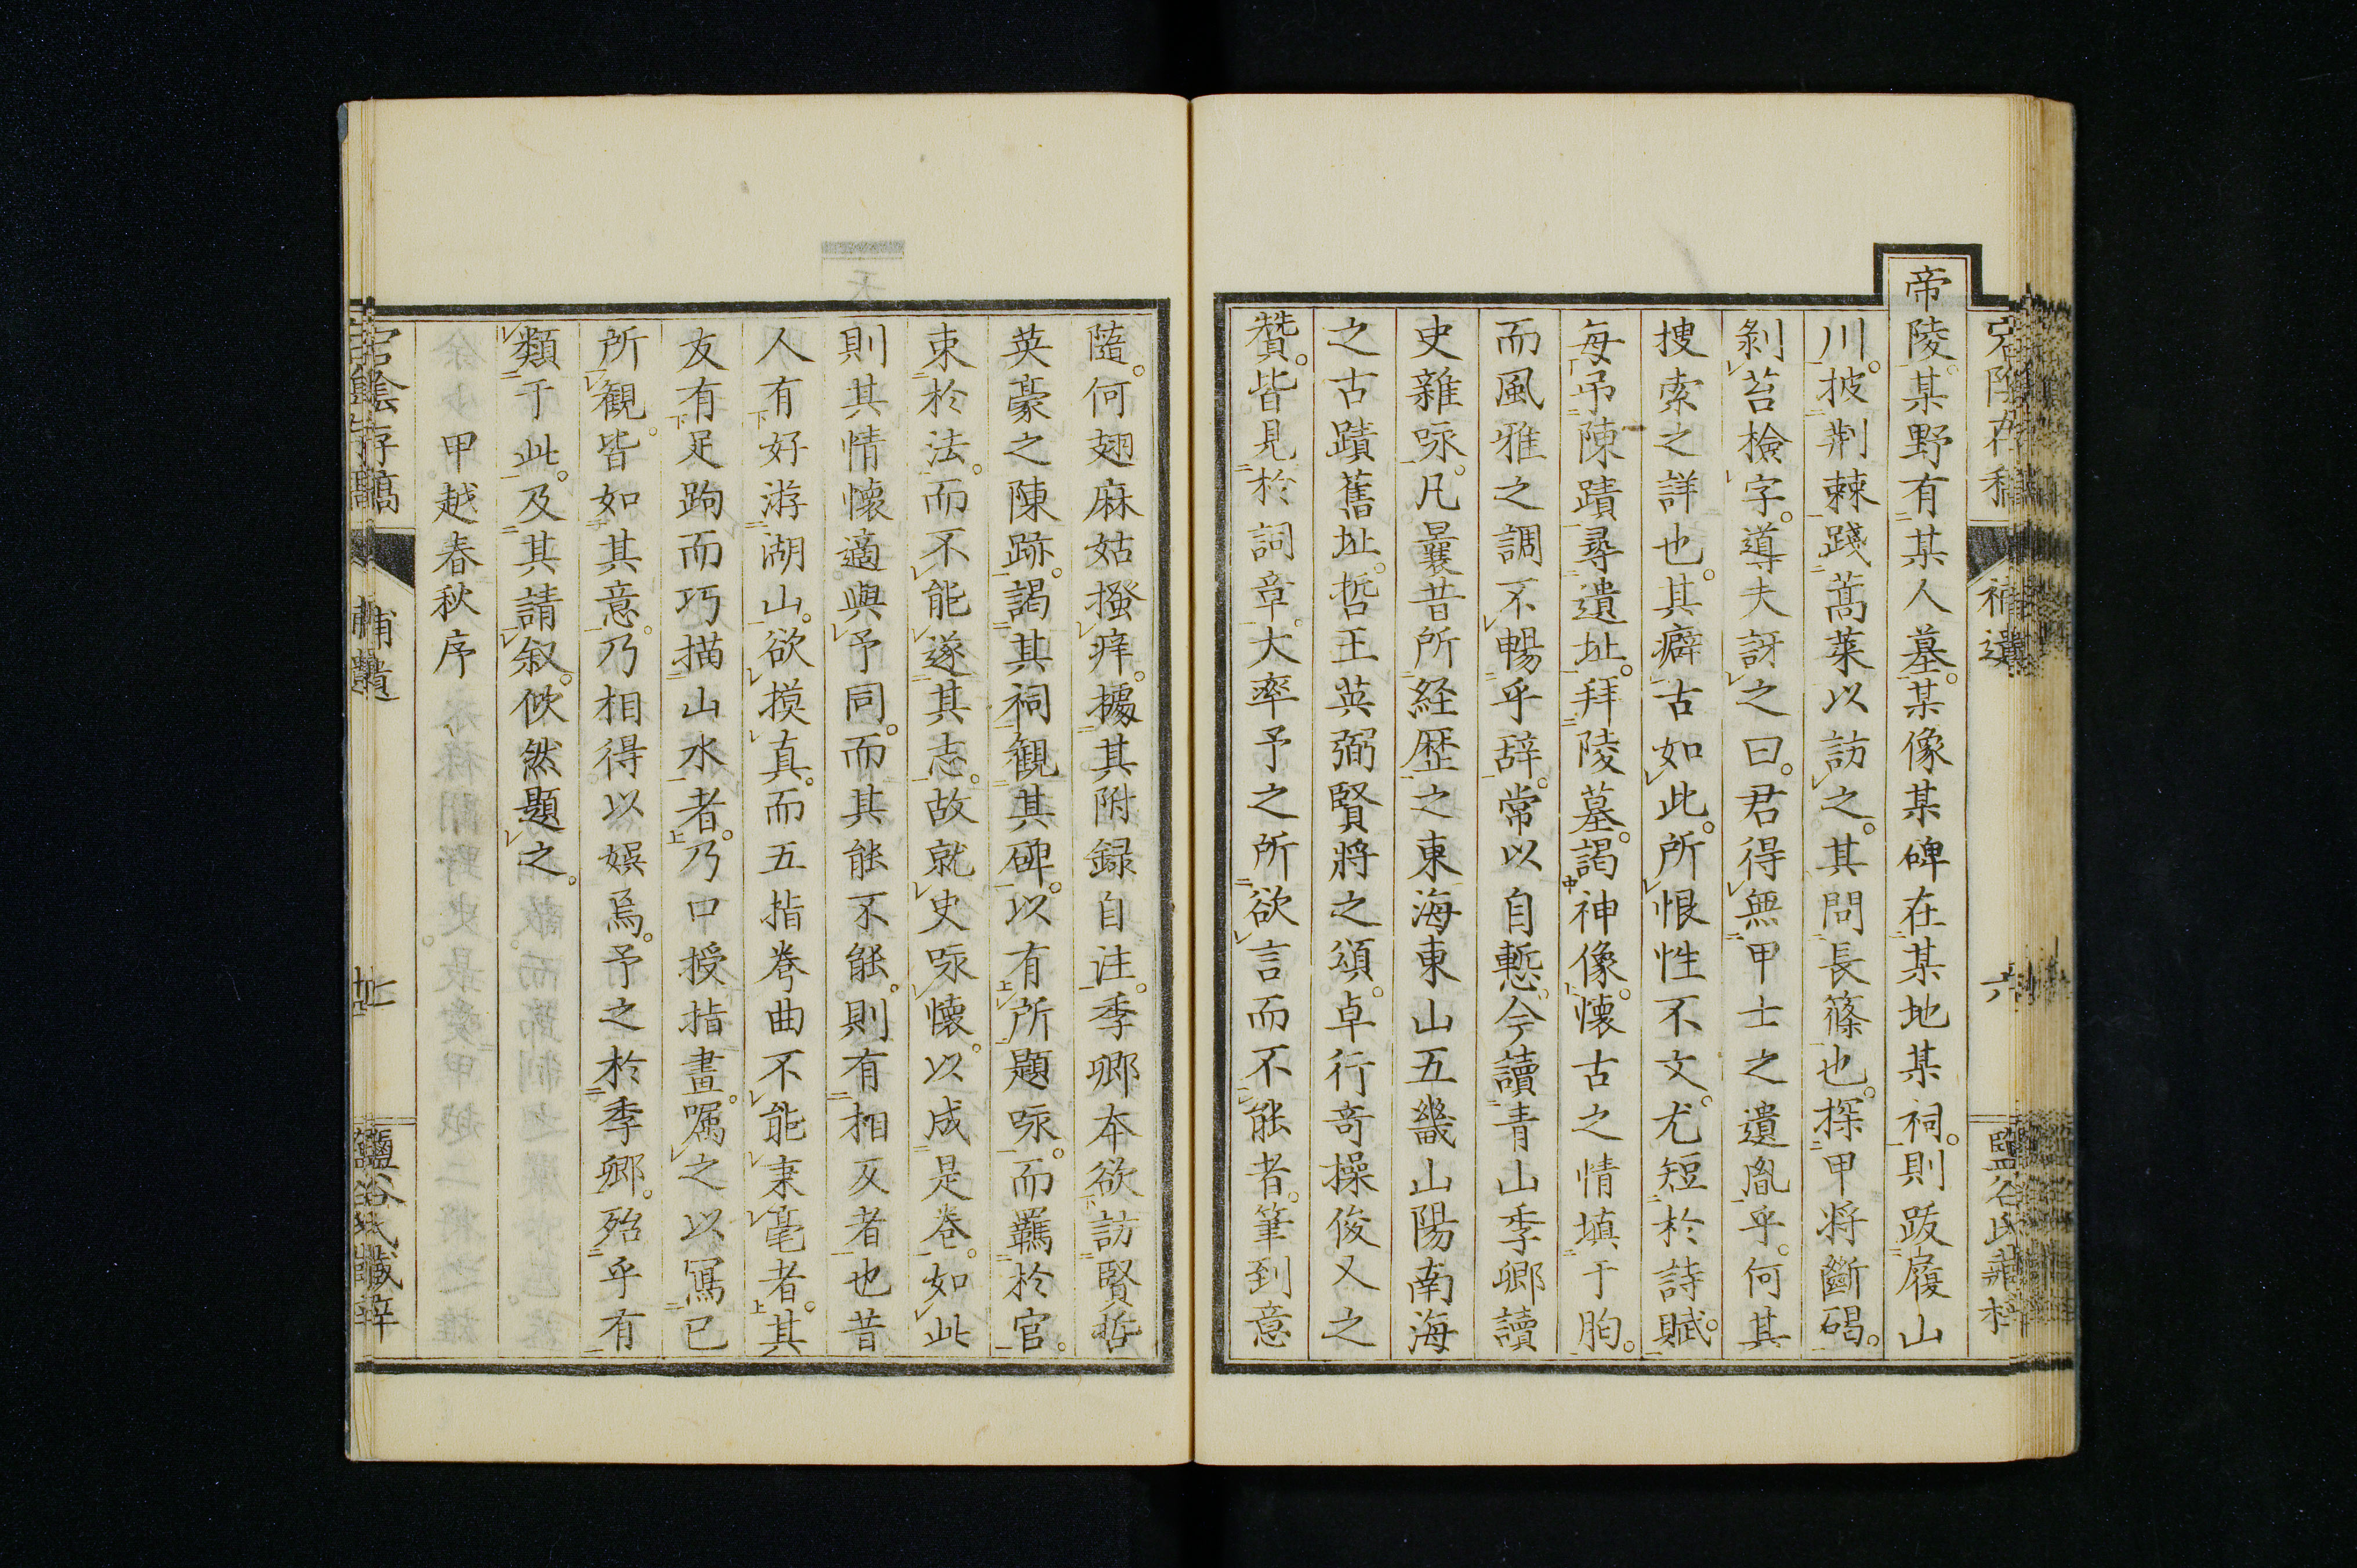 帝陵某野有某人墓。某像某碑在某地某祠。則跋履山
川。披荆棘踐蒿萊以訪之。其問長篠也。探甲將斷碣。
剝苔檢字。導夫訝之曰。君得無甲士之遺胤乎。何其
搜索之詳也。其癖古如此。所恨性不文。尤短於詩賦。
每吊陳蹟尋遺址。拜陵墓。謁神像。懷古之情填于胸。
而風雅之調不暢乎辞。常以自慙。今讀青山季卿讀
史雜咏。凡曩昔所経歷之東海東山五畿山陽南海
之古蹟舊址。哲王英弼賢將之頌。卓行奇操俊乂之
贊。皆見於詞章。大率予之所欲言而不能者。筆到意
隨。何翅麻姑搔痒。據其附録自注。季卿本欲訪賢哲
英豪之陳跡。謁其祠觀其碑。以有所題咏。而羈於官。
束於法。而不能遂其志。故就史咏懷。以成是卷。如此
則其情懷適與予同。而其能不能。則有相反者也昔
人有好游湖山。欲摸真。而五指拳曲不能秉毫者。其
友有足跔而巧描山水者。乃口授指畫。嘱之以寫已
所觀。皆如其意。乃相得以娯焉。予之於季卿。殆乎有
類于此。及其請叙。佽然題之。
甲越春秋序
宕陰存稿
補遺
七